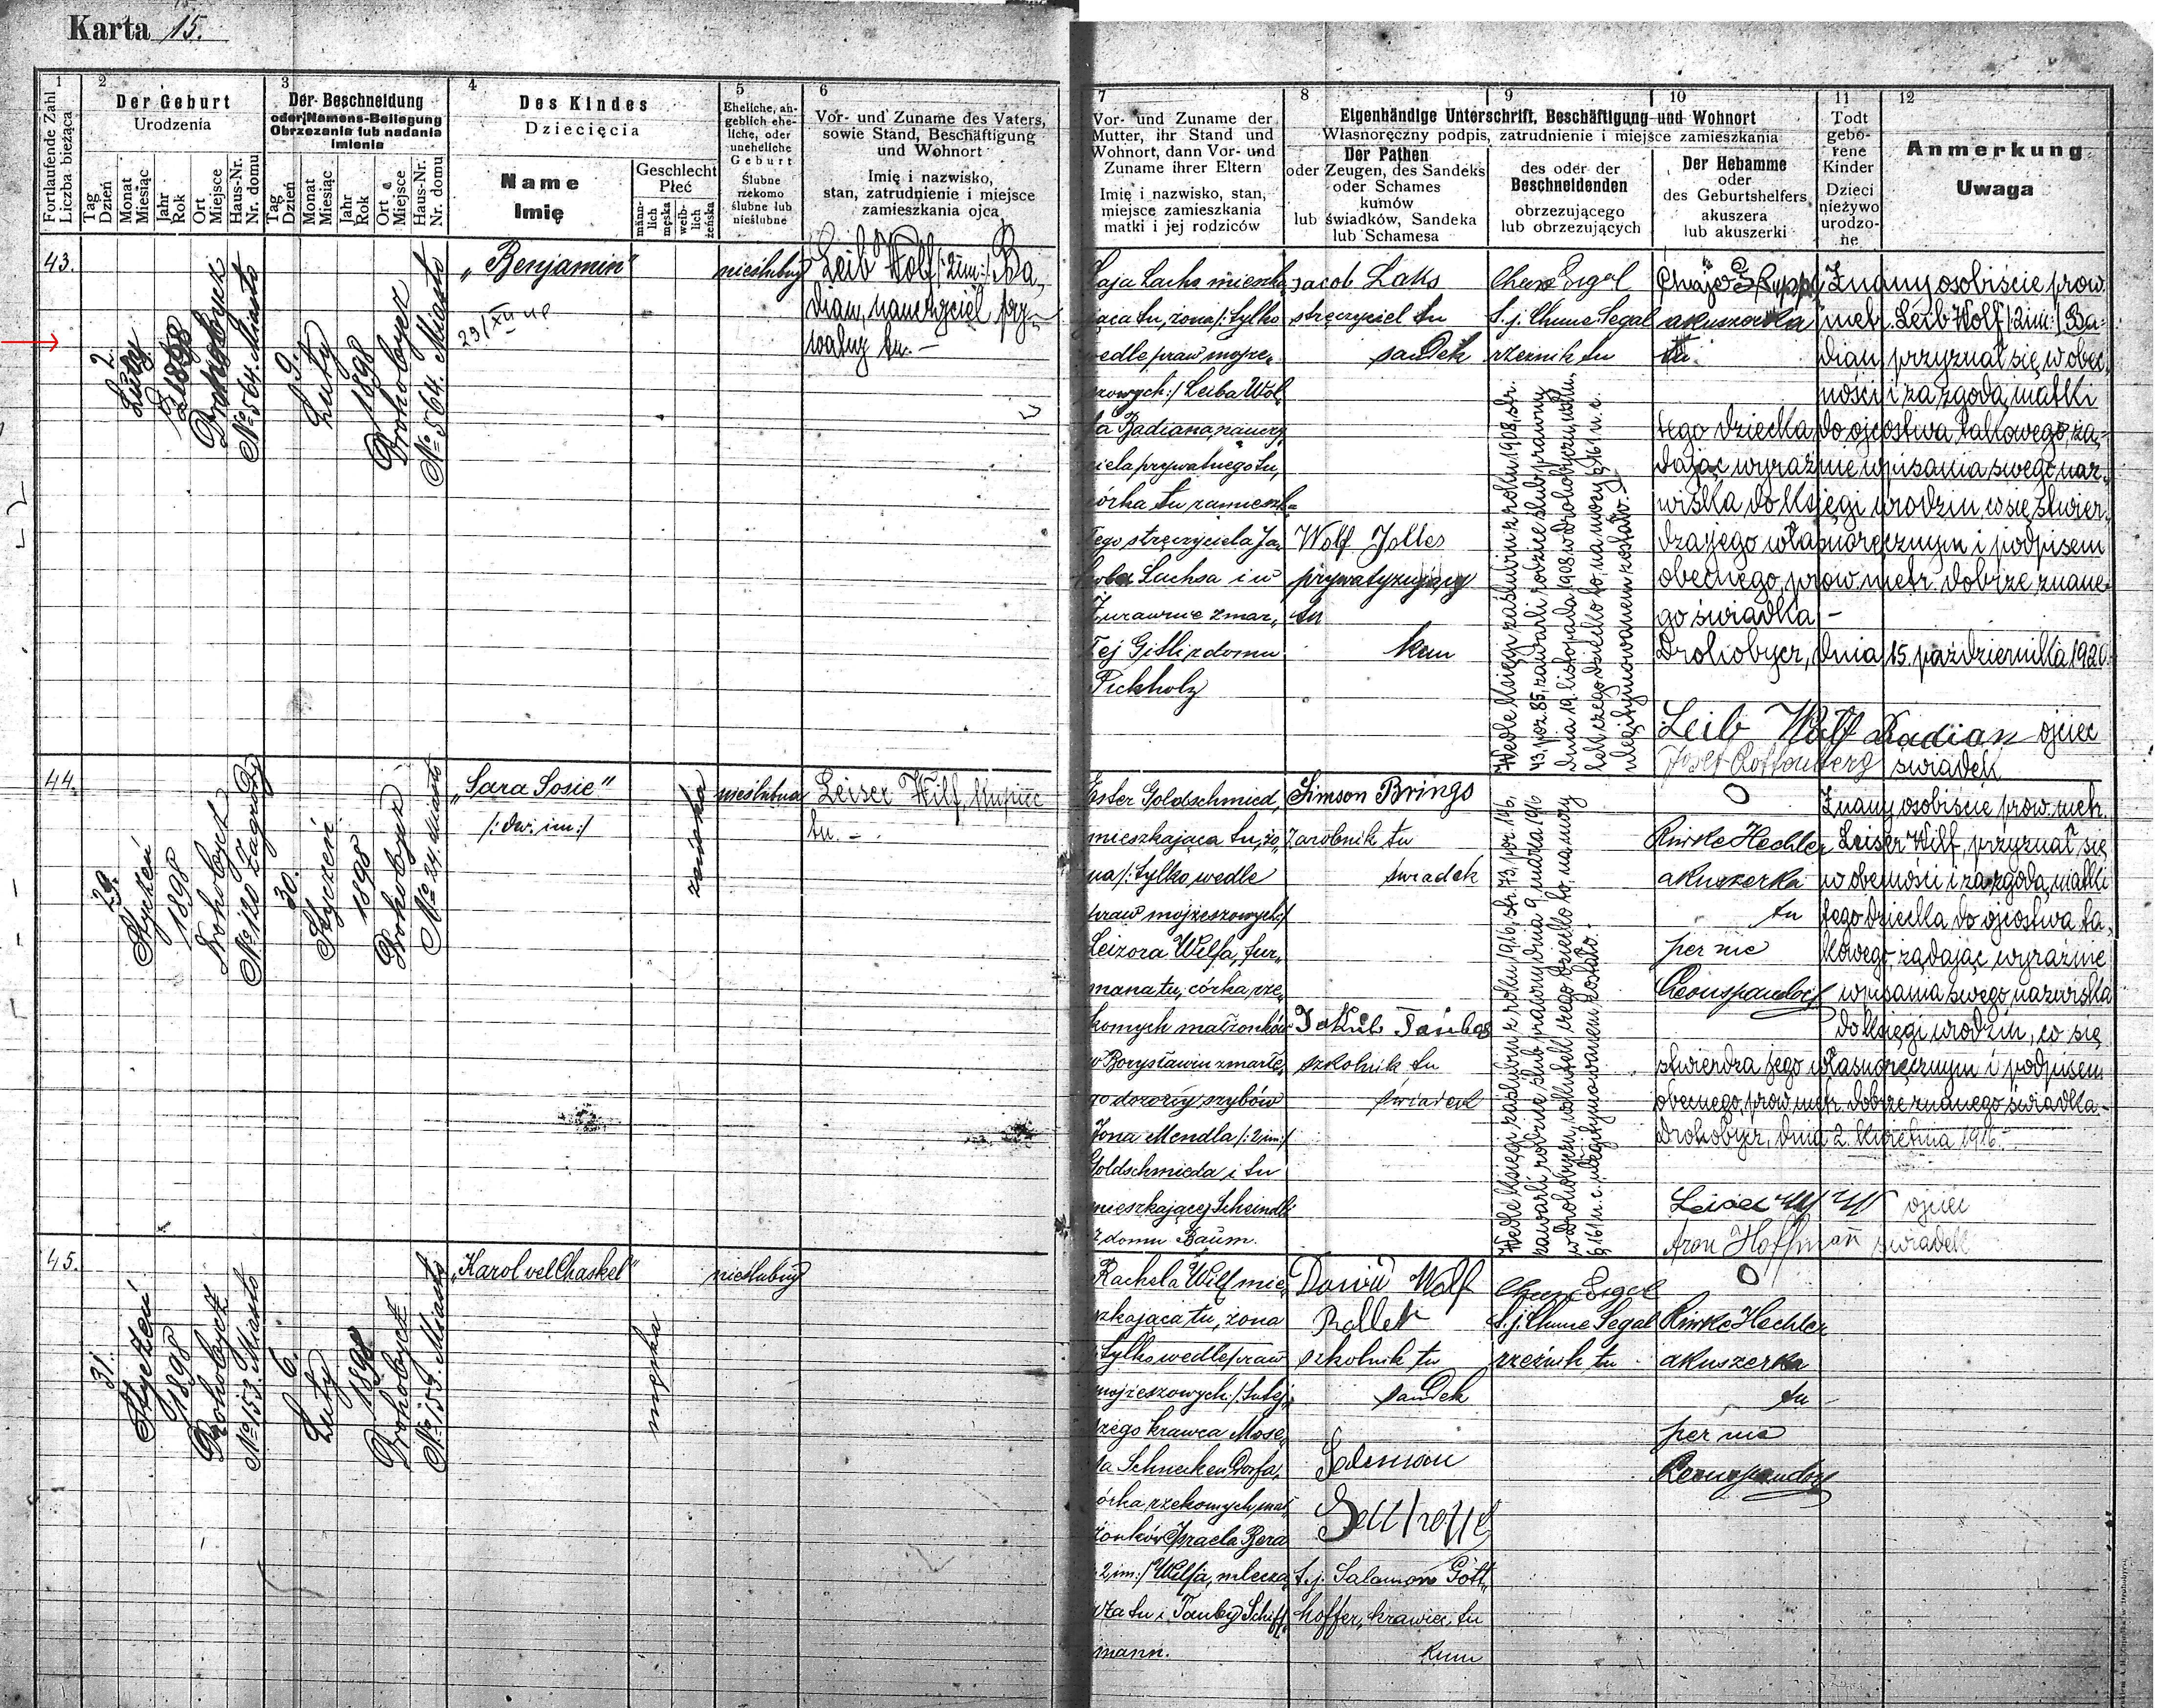 Karta 15.
1
Fortlaufende Zahl
Liczba bieżąca
2
Der Geburt
Urodzenia
Tag
Dzień
Monat
Miesiąc
Jahr
Rok
Ort
Miejsce
Haus-Nr.
Nr. domu
3
Der Beschneidung
oder Namens-Beilegung
Obrzezania lub nadania
imienia
Tag
Dzień
Monat
Miesiąc
Jahr
Rok
Ort
Miejsce
Haus-Nr.
Nr. domu
4
Des Kindes
Dziecięcia
Name
Imię
Geschlecht
Płeć
männ-
lich
męska
weib-
lich
żeńska
5
Eheliche, an-
geblich ehe-
liche, oder
uneheliche
Geburt
Ślubne
rzekomo
ślubne lub
nieślubne
6
Vor- und Zuname des Vaters,
sowie Stand, Beschäftigung
und Wohnort
Imię i nazwisko,
stan, zatrudnienie i miejsce
zamieszkania ojca
7
Vor- und Zuname der
Mutter, ihr Stand und
Wohnort, dann Vor- und
Zuname ihrer Eltern
Imię i nazwisko, stan,
miejsce zamieszkania
matki i jej rodziców
8 9 10
Eigenhändige Unterschrift, Beschäftigung und Wohnort
Własnoręczny podpis, zatrudnienie i miejsce zamieszkania
Der Pathen
oder Zeugen, des Sandeks
oder Schames
kumów
lub świadków, Sandeka
lub Schamesa
des oder der
Beschneidenden
obrzezującego
lub obrzezujących
Der Hebamme
oder
des Geburtshelfers
akuszera
lub akuszerki
11
Todt
gebo-
rene
Kinder
Dzieci
nieżywo
urodzo-
ne
12
Anmerkung
Uwaga
43.
2.
Luty
1898
Drohobycz
No 564. Miasto
9.
Luty
1898
Drohobycz
No 564. Miasto
"Benjamin"
nieślubny
Leib Wolf /:2 im:/ Ba„
dian, nauczyciel pry„
watny tu. –
Laja Lachs mieszka„
jąca tu, żona /: tylko
wedle praw mojże„
szowych:/ Leiba Wol„
fa Badiana, nauczy„
ciela prywatnego tu,
córka tu zamieszk=
łego stręczyciela Ja„
koba Lachsa i w
Żurawnie zmar„
łej Gitli z domu
Pickholz
Jacob Laks
stręczyciel tu
sandek
Wolf Jolles
prywatyzujący
tu
kum
Chune Segal
t. j. Chune Segal
rzeźnik tu
akuszerka
tu.
Znany osobiście prow.
metr. Leib Wolf /:2 im:/ Ba=
dian, przyznał się w obec„
ności i za zgodą matki
tego dziecka do ojcostwa takowego, żą„
dając wyraźnie wpisania swego naz„
wiska do księgi urodzin co się stwier„
dza jego własnoręcznym i podpisem
obecnego, prow. metr. dobrze znane„
go świadka –
Drohobycz, dnia 15. października 1920.
Leib Wolf Badian ojciec
Josef Rottenberg świadek
Wedle księgi zaślubin z roku 1908, str.
43, poz. 85, zawarli rodzice ślub prawny
dnia 19. listopada 1908 w Drohobyczu, wsku„
tek czego dziecko to, na mocy § 161 u. c.
ulegitymowanem zostało. –
44.
29.
Styczeń
1898
Drohobycz
No 120 Zagrody
30.
Styczeń
1898
Drohobycz
No 24 Miasto
"Sara Sosie"
/: dw: im:/
żeńska
nieślubna
Leiser Wilf, kupiec
tu. –
Ester Goldschmied,
mieszkająca tu, żo„
na /: tylko wedle
praw mojżeszowych:/
Leizora Wilfa, fur„
mana tu, córka, rze„
komych małżonków
w Borysławiu zmarłe„
go dozorcy szybów
Jona Mendla /: 2 im:/
Goldschmieda i tu
mieszkającej Scheindli
z domu Baum.
Simson Brings
Zarobnik tu
świadek
Jakub Taubes
szkolnik tu
świadek
Rivke Hechler
akuszerka
tu
per nie
Znany osobiście prow. metr.
Leiser Wilf, przyznał się
w obecności i za zgodą matki
tego dziecka do ojcostwa ta„
kowego, żądając wyraźnie
wpisania swego nazwiska
do księgi urodzin, co się
stwierdza jego własnoręcznym i podpisem
obecnego, prow. metr. dobrze znanego świadka. –
Drohobycz, dnia 2. kwietnia 1916. –
Leiser Wilf ojciec
Aron Hoffman świadek
Wedle księgi zaślubin z roku 1916, str. 73, poz. 146,
zawarli rodzice ślub prawny dnia 9. marca 1916
w Drohobyczu, wskutek czego dziecko to, na mocy
§ 161 u. c. ulegitymowanem zostało. –
45.
31.
Styczeń
1898
Drohobycz
No 153. Miasto
6.
Luty
1898
Drohobycz
No 153 Miasto
"Karol vel Chaskel"
męska
nieślubny
Rachela Wilf mie„
szkająca tu, żona
/: tylko wedle praw
mojżeszowych:/ tutej„
szego krawca Mose„
sa Schneckendorfa,
córka rzekomych mał„
żonków Izraela Bera
/: 2 im:/ Wilfa, mlecza„
rza tu i Tauby Schiff„
mann.
Dawid Wolf
Rallet
szkolnik tu
sandek
Salomon
t. j. Salamon Gott„
hoffer, krawiec, tu
kum
Chune Segal
t. j. Chune Segal
rzeźnik tu
Rivke Hechler
akuszerka
tu
per nie